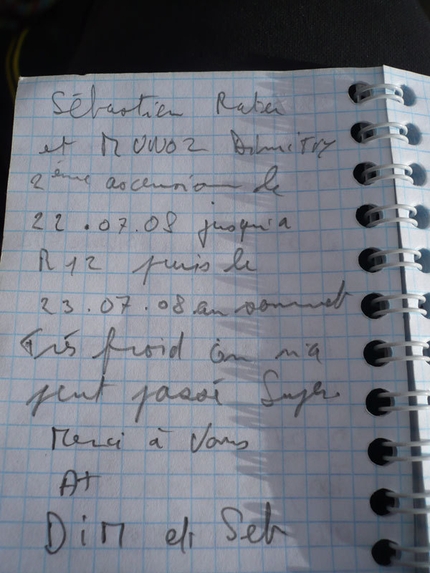 Sébastien Ratel
et MUNOZ Dimitry
2ème ascension le
22.07.08 jusqu'a
R12 puis le
23.07.08 au sommet
Très froid on n'a
peut passé Super
Merci à Vous
A+
DIM et Seb